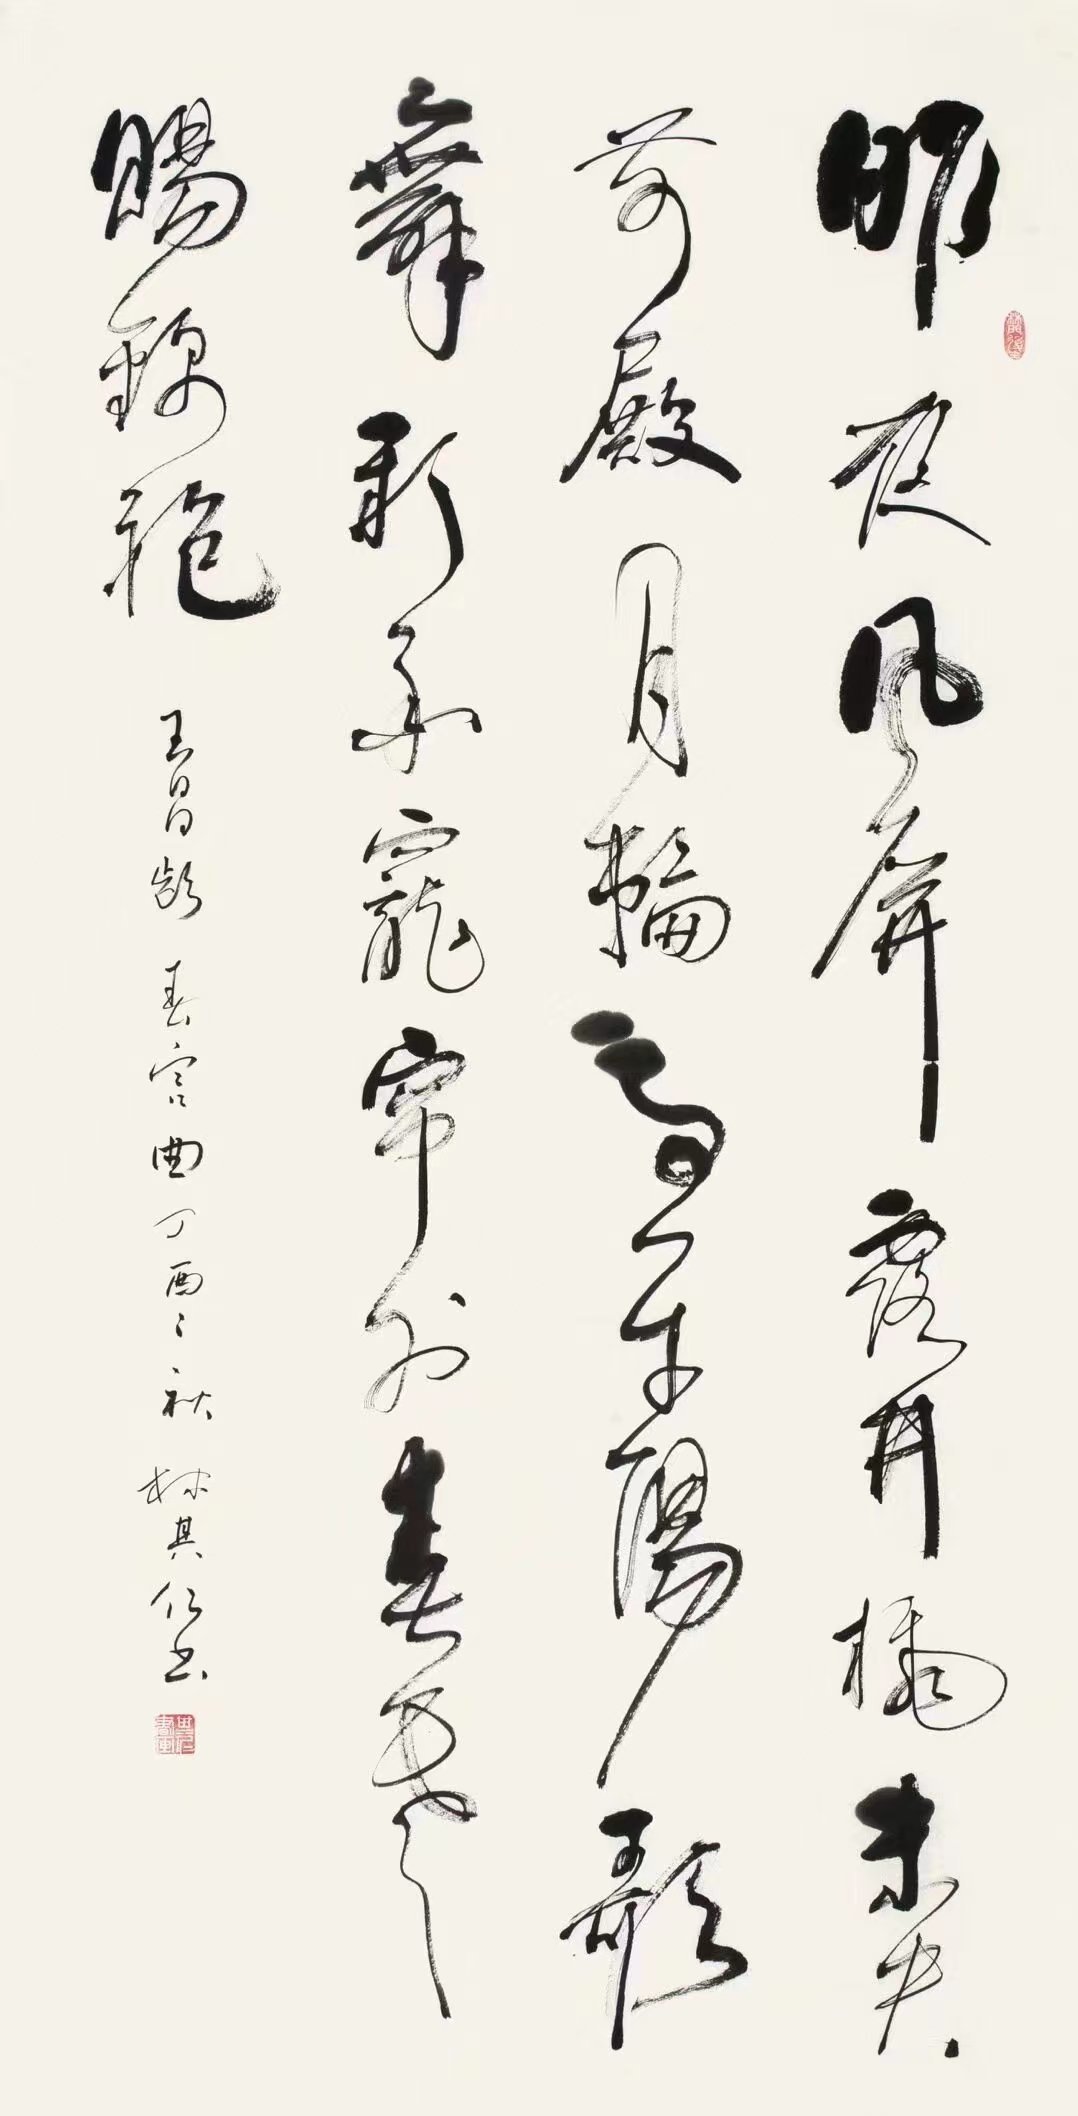 昨夜風開露井桃未央
前殿月輪高平陽歌
舞新承寵帘外春寒
賜錦袍 王昌齡春宮曲丁酉之秋林其仁書